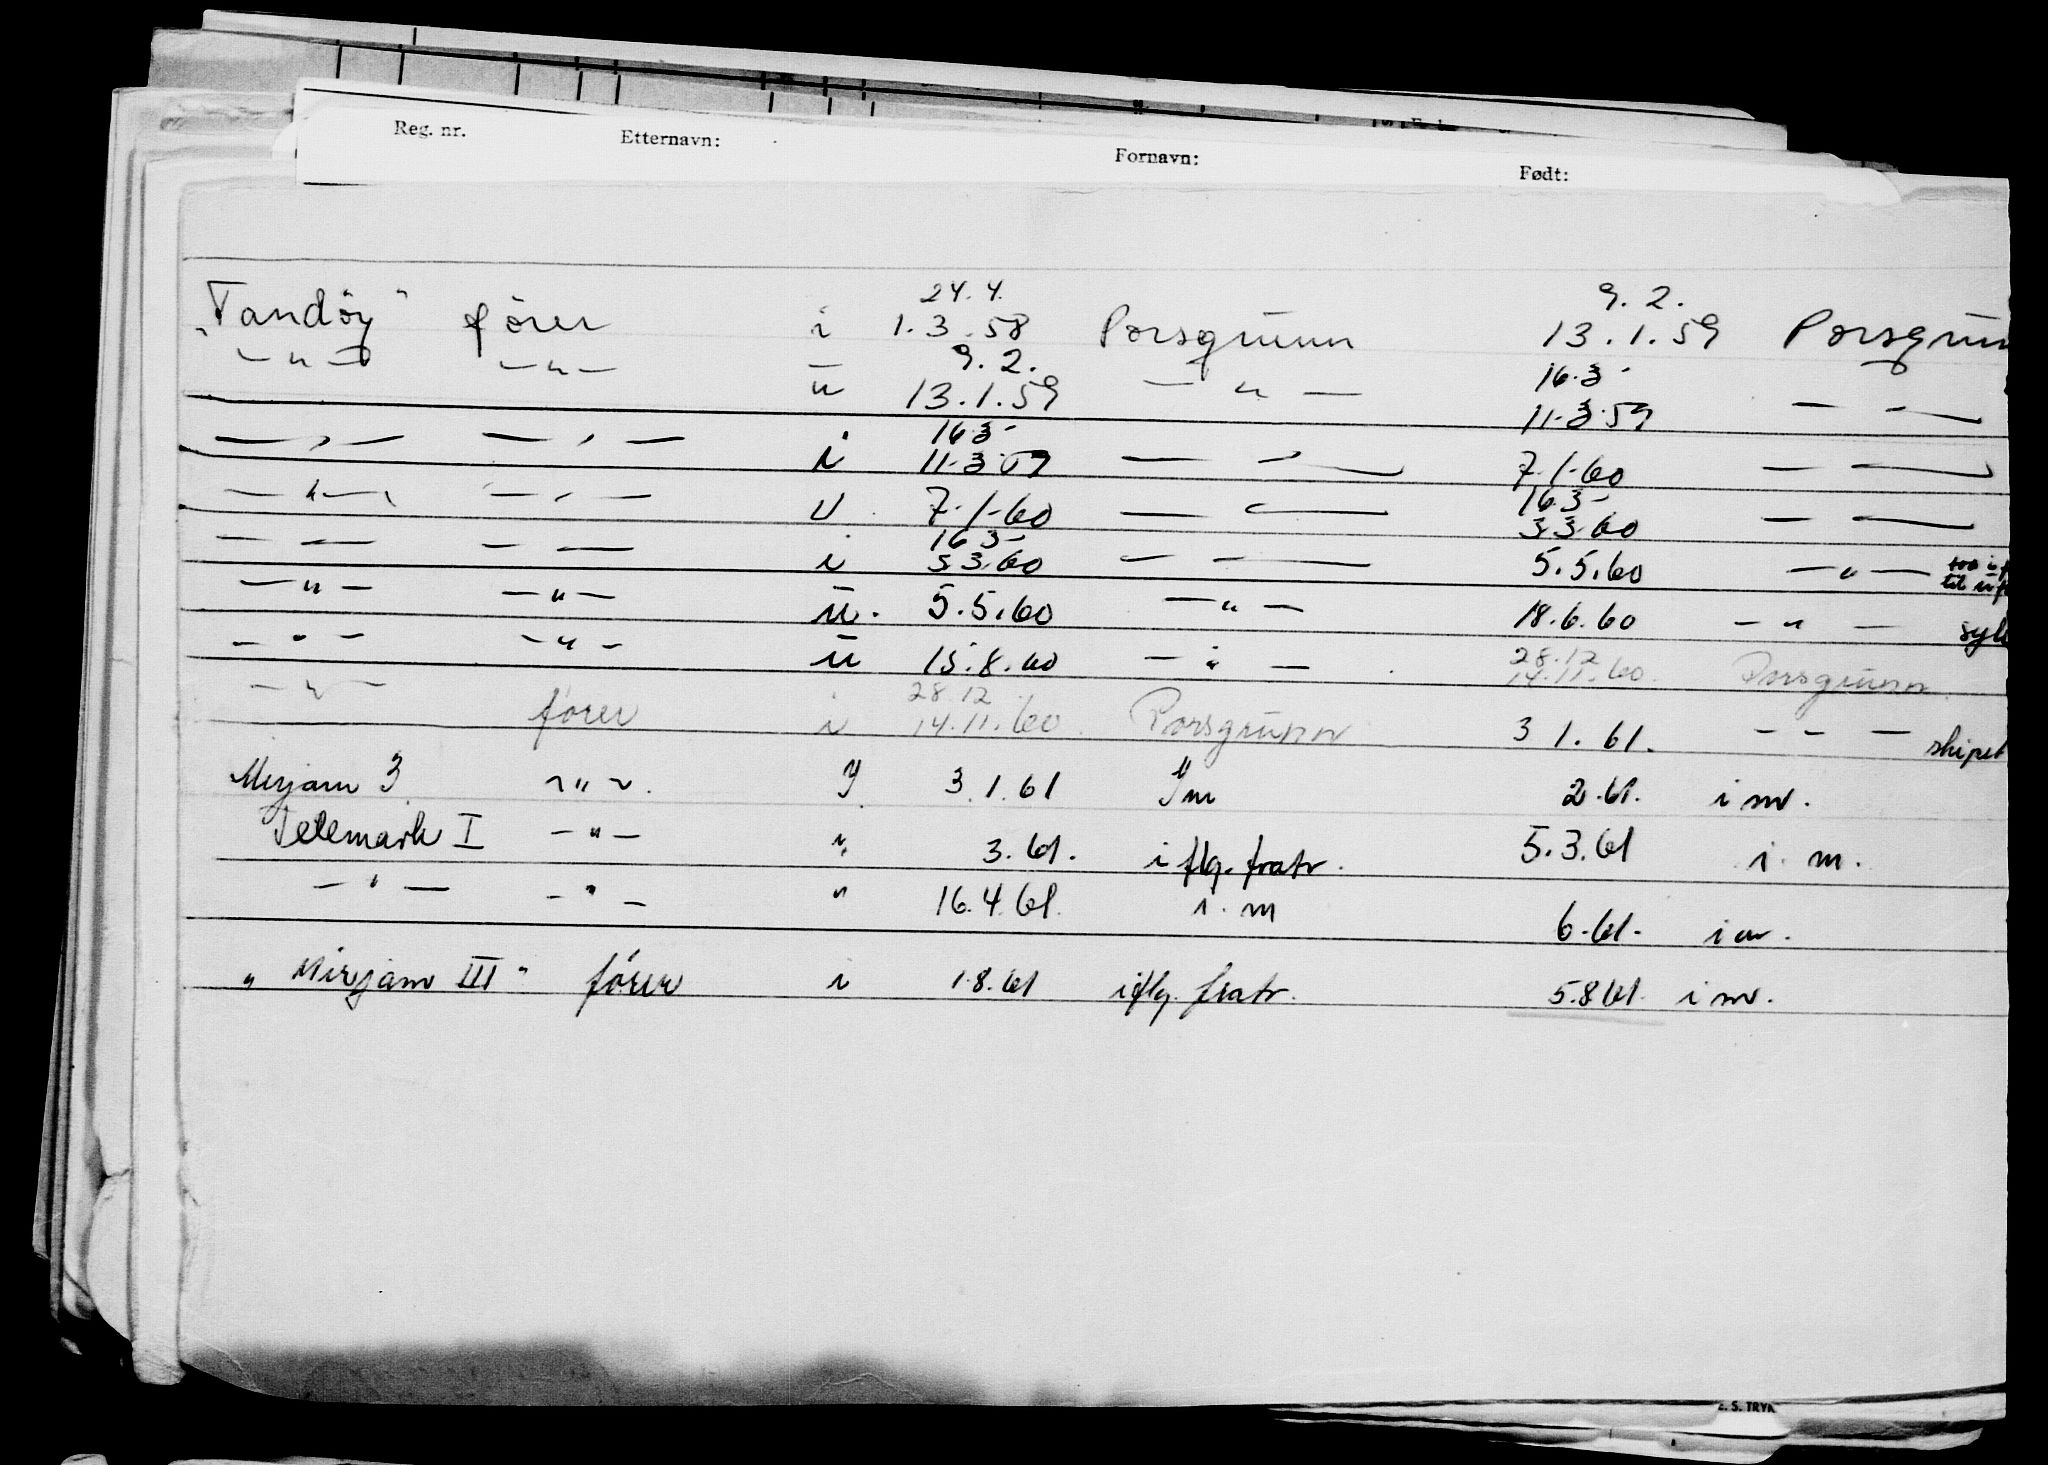 Reg. nr. Etternavn: Fornavn: Født:
24.4. 9. 2.
"Tandöy" förer i 1.3.58 Porsgrunn 13.1.59 Porsgrun
— " — — " — 9. 2. 16.3-
u 13.1.59 — " — 11.3.59 — " —
16.3-
— " — — " — i 11.3.59 — " — 7.1-60 — " —
16.3-
— " — — " — u 7.1-60 — " — 3.3.60 — " —
16.3-
— " — — " — i 3.3.60 — " — 5.5.60 — " —
— " — — " — u. 5.5.60 — " — 18.6.60 — " —
— " — — " — u 15.8.60 — " — 28.12 14.11.60. Porsgrunn
28.12
— " — förer i 14.11.60 Porsgrunn 3 1.61. — " — skipet
Mirjam 3 — " — 3.1.61 2.61. i m.
Telemark I — " — " 3.61. i flg. fratr. 5.3.61 i. m.
— " — — " — " 16.4.61. i. m 6.61. i m.
"Mirjam III" förer i 1.8.61 iflg. fratr. 5.8.61. i m.
E. S. TRYK